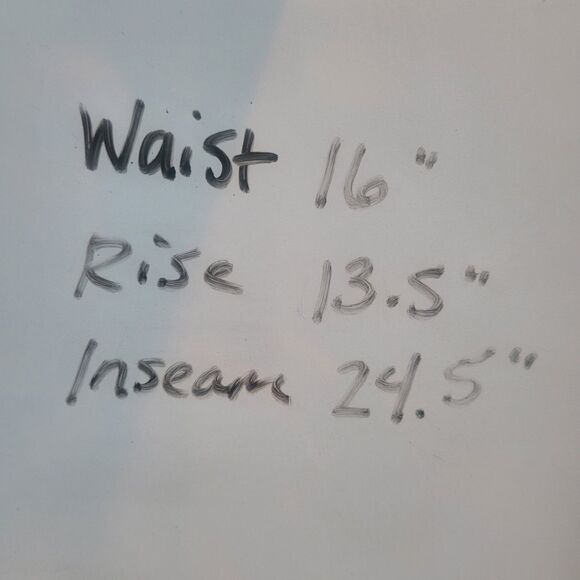 Waist 16"
Rise 13.5"
Inseam 24.5"